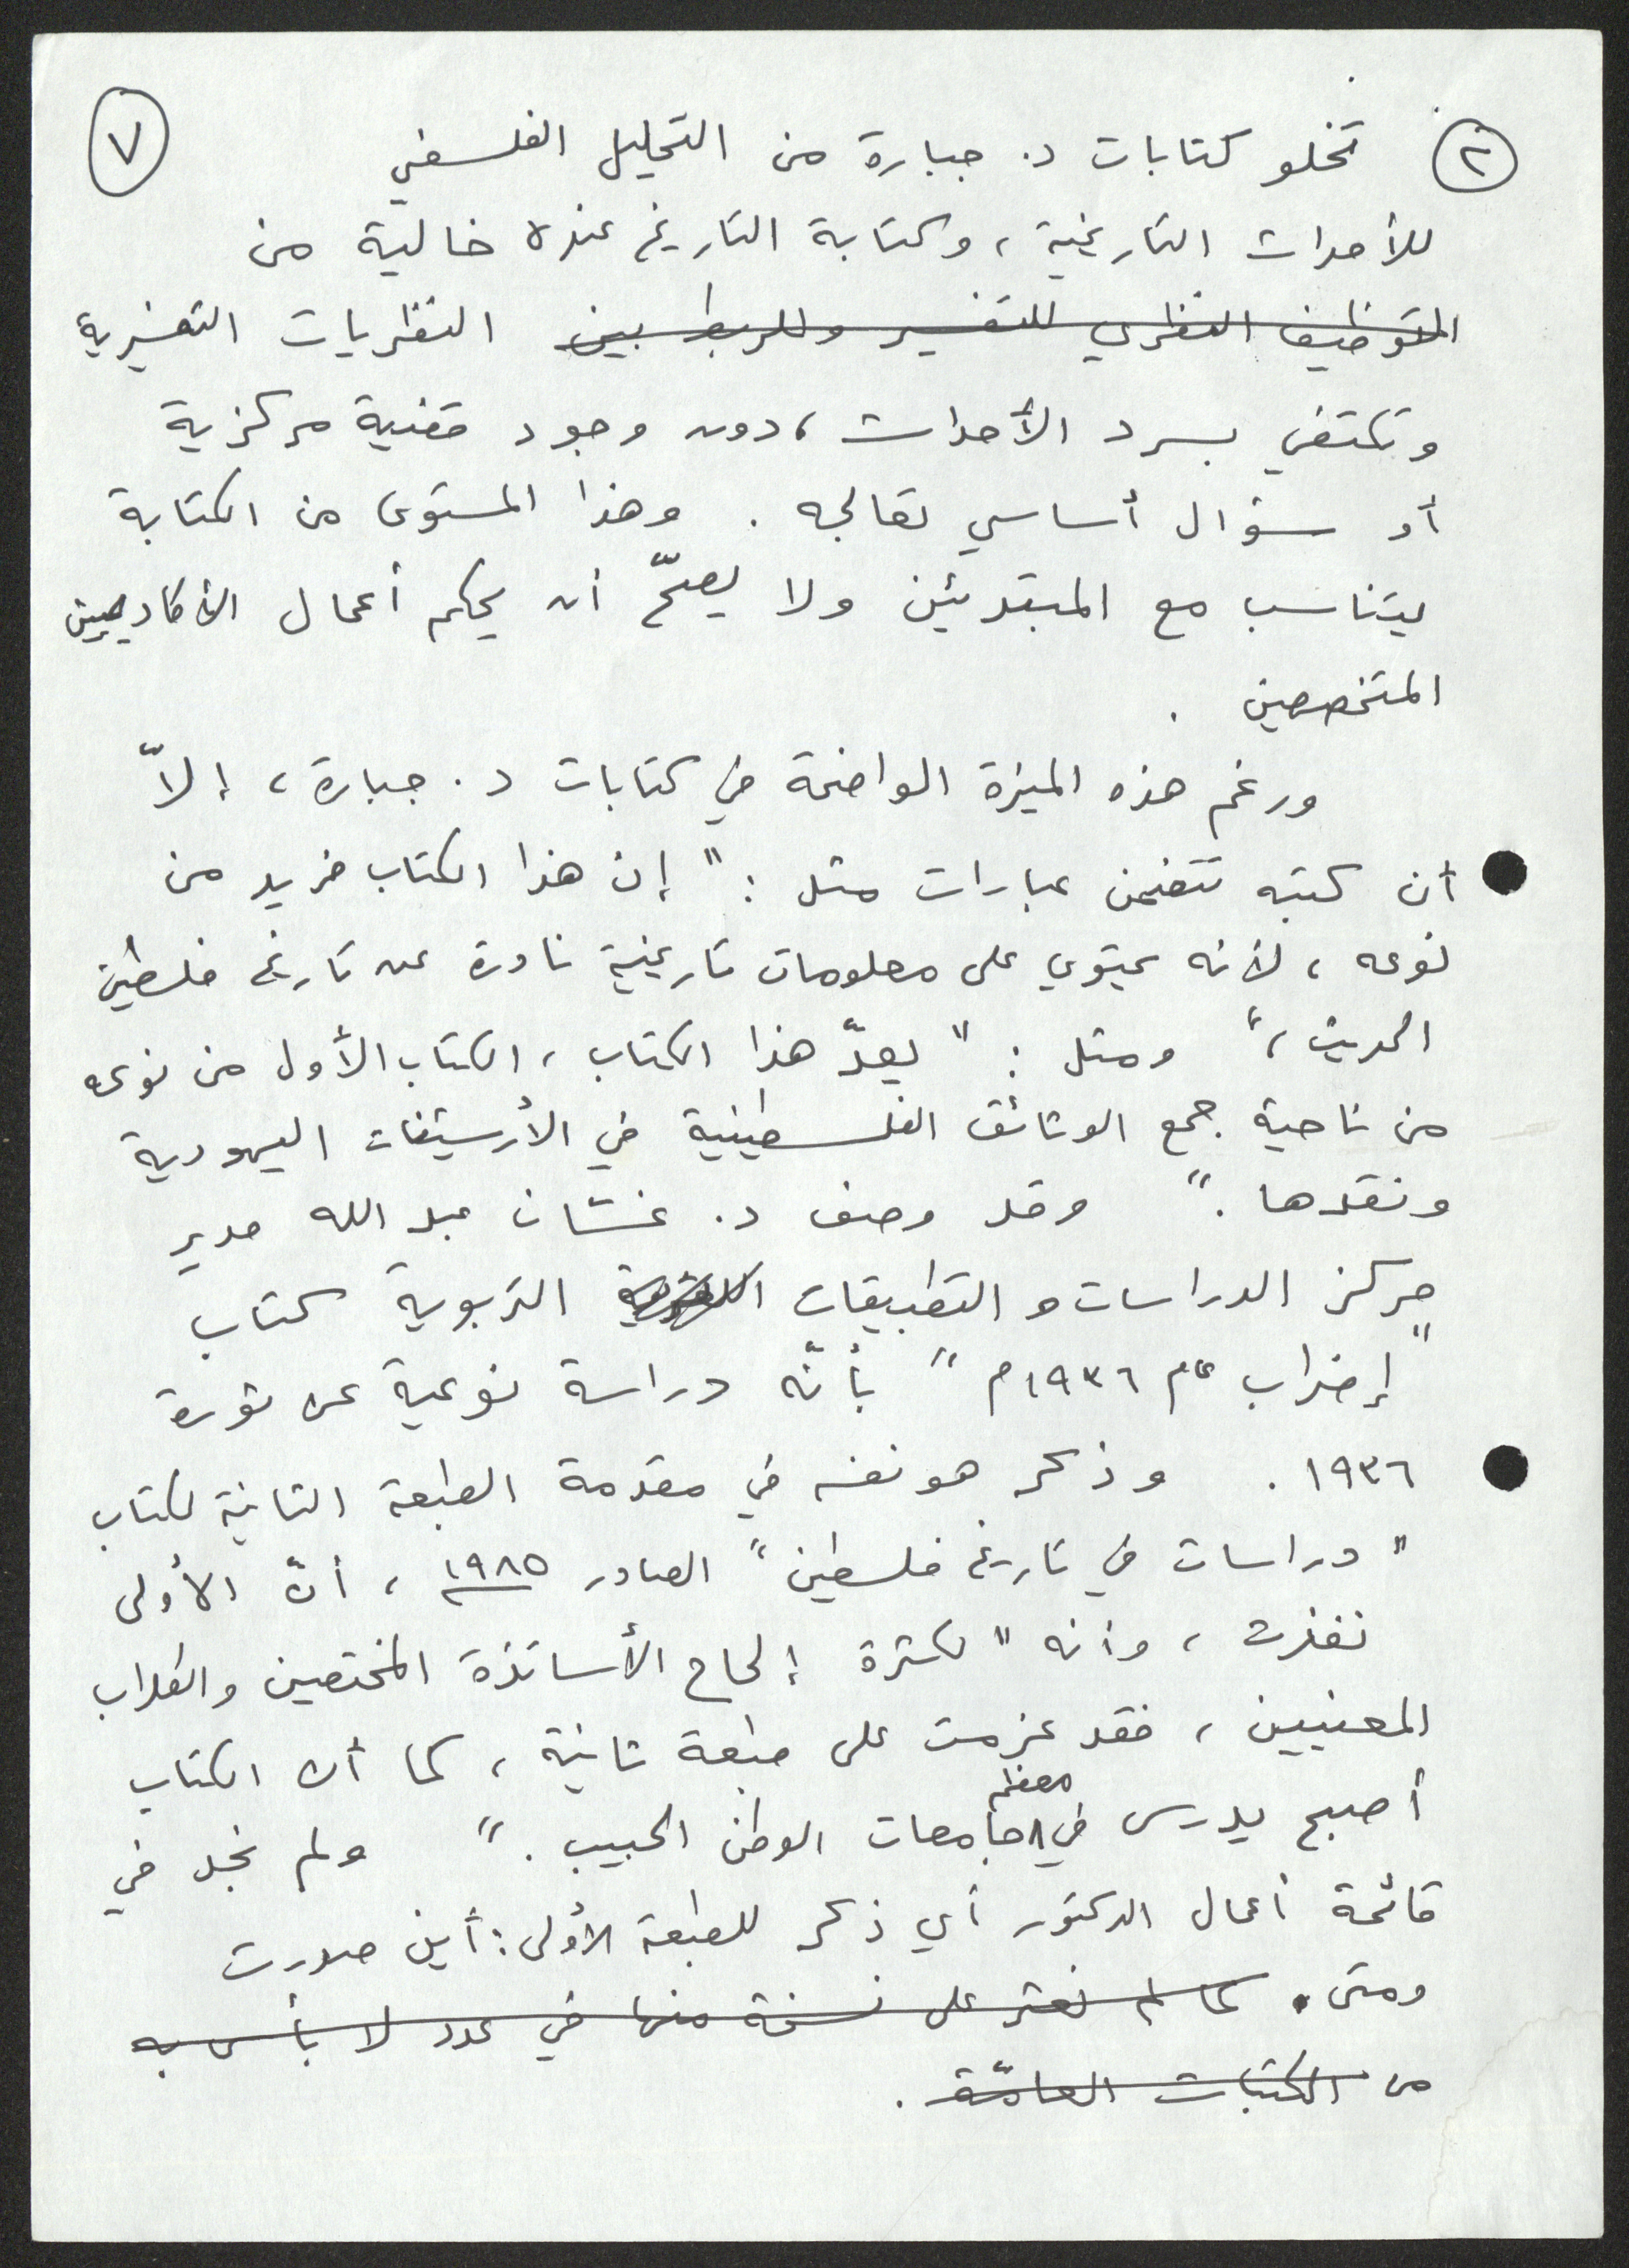 ٧
٢ تخلو كتابات د. جبارة من التحليل الفلسفي
للأحداث التاريخية، وكتابة التاريخ عنده خالية من
التوظيف النظري للتفسير وللربط بين النظريات التفسيرية
وتكتفي بسرد الأحداث، دون وجود قضية مركزية
أو سؤال أساسي تعالجه. وهذا المستوى من الكتابة
يتناسب مع المبتدئين ولا يصحّ أن يحكم أعمال الأكاديميين
المتخصصين.
ورغم هذه الميزة الواضحة في كتابات د. جبارة، إلاّ
أن كتبه تتضمن عبارات مثل: "إن هذا الكتاب فريد من
نوعه، لأنه يحتوي على معلومات تاريخية نادرة عن تاريخ فلسطين
الحديث،" ومثل: "يعدّ هذا الكتاب، الكتاب الأول من نوعه
من ناحية جمع الوثائق الفلسطينية في الأرسيتفات اليهودية
ونقدها." وقد وصف د. غسّان عبد الله مدير
مركز الدراسات والتطبيقات التربوية كتاب
"إضراب عام ١٩٣٦م" بأنّه دراسة نوعية عن ثورة
١٩٣٦. وذكر هو نفسه في مقدمة الطبعة الثانية لكتاب
"دراسات في تاريخ فلسطين" الصادر ١٩٨٥، أنّ الأولى
نفذت، وأنه "لكثرة إلحاح الأساتذة المختصين والطلاب
المعنيين، فقد عزمت على طبعة ثانية، كما أن الكتاب
أصبح يدرس في معظم جامعات الوطن الحبيب." ولم نجد في
قائمة أعمال الدكتور أي ذكر للطبعة الأولى: أين صدرت
ومتى. كما لم نعثر على نسخة منها في عدد لا بأس به
من المكتبات العامّة.